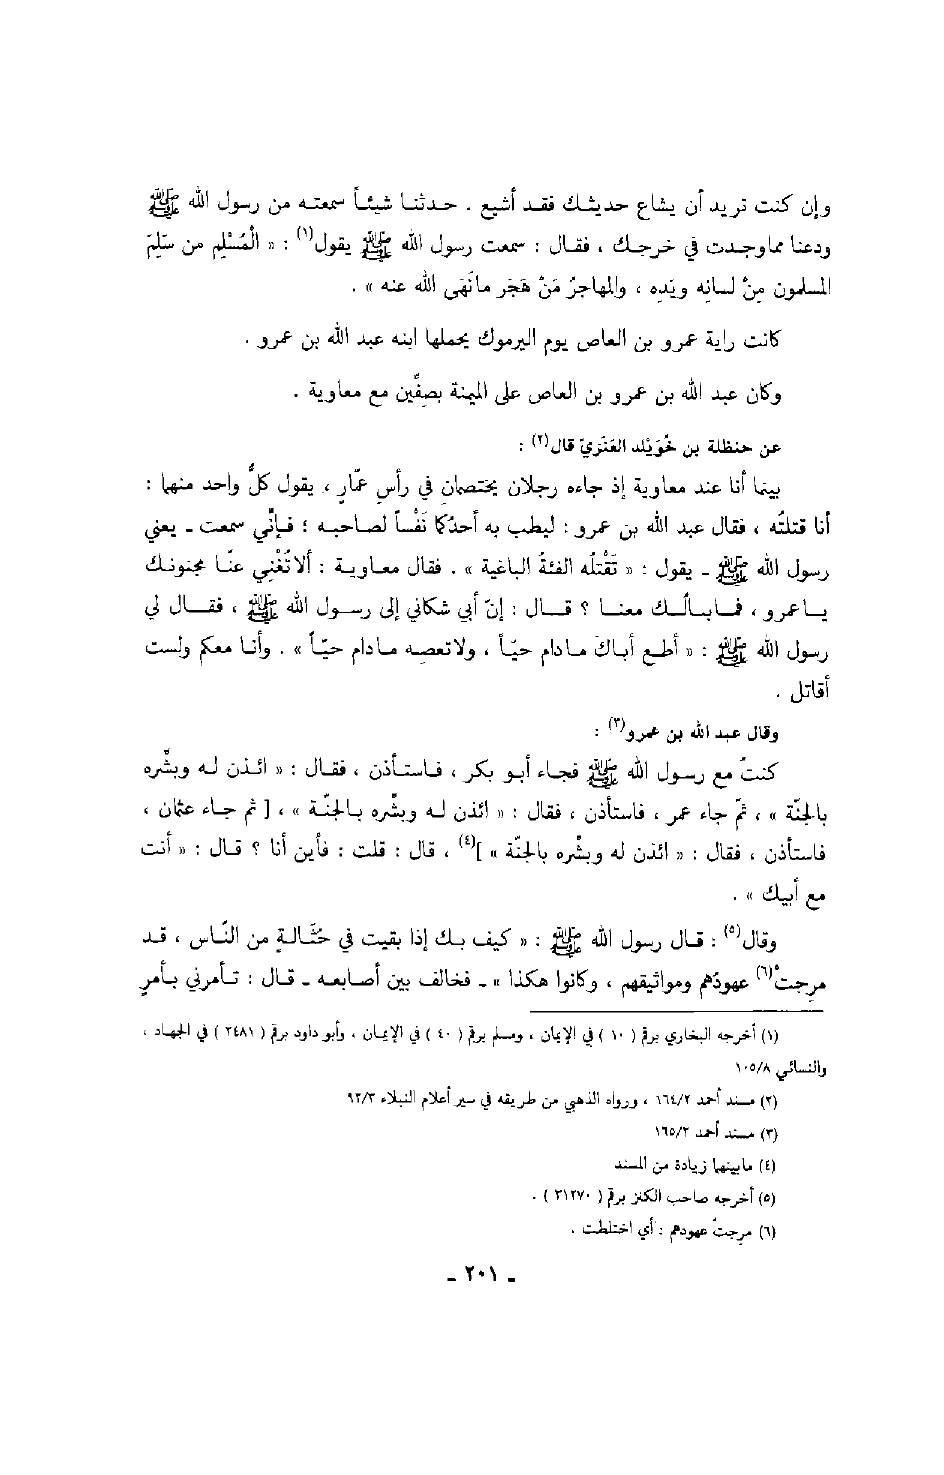 وإن كنت تريد أن يشاع حديثك فقد أشيع . حدثنا شيئاً سمعته من رسول الله ﷺ
ودعنا مما وجدت في خرجك ، فقال : سمعت رسول الله ﷺ يقول(١) : « الْمُسْلِم من سَلِمَ
المسلمون مِنْ لسانِه ويَدِه ، والمهاجرُ مَنْ هَجَر مانَهَى الله عنه » .
كانت راية عمرو بن العاص يوم اليرموك يحملها ابنه عبد الله بن عمرو .
وكان عبد الله بن عمرو بن العاص على الميمنة بصِفِّين مع معاوية .
عن حنظلة بن خُوَيْلد العَنَزيّ قال(٢) :
بينما أنا عند معاوية إذ جاءه رجلان يختصمان في رأسِ عمّارٍ ، يقول كلُّ واحد منهما :
أنا قتلتُه ، فقال عبد الله بن عمرو : ليطب به أحدُكما نَفْساً لصاحبه ؛ فإنِّي سمعت ـ يعني
رسول الله ﷺ ـ يقول : « تَقْتلُه الفئةُ الباغية » . فقال معاوية : ألا تُغْني عنّا مجنونك
ياعمرو ، فمابالُك معنا ؟ قال : إنّ أبي شكاني إلى رسول الله ﷺ ، فقال لي
رسول الله ﷺ : « أطع أباكَ مادام حيّاً ، ولاتعصه مادام حيّاً » . وأنا معكم ولست
أقاتل .
وقال عبد الله بن عمرو(٣) :
كنتُ مع رسول الله ﷺ فجاء أبو بكر ، فاستأذن ، فقال : « ائذن له وبشِّره
بالجنّة » ، ثمّ جاء عمر ، فاستأذن ، فقال : « ائذن له وبشِّره بالجنّة » ، [ ثم جاء عثمان ،
فاستأذن ، فقال : « ائذن له وبشِّره بالجنّة » ](٤) ، قال : قلت : فأين أنا ؟ قال : « أنت
مع أبيك » .
وقال(٥) : قال رسول الله ﷺ : « كيف بك إذا بقيت في حُثَالةٍ من النّاس ، قد
مرِجتْ(٦) عهودُهم ومواثيقهم ، وكانوا هكذا » ـ فخالف بين أصابعه ـ قال : تأمرني بأمرٍ
(١) أخرجه البخاري برقم ( ١٠ ) في الإيمان ، ومسلم برقم ( ٤٠ ) في الإيمان ، وأبو داود برقم ( ٢٤٨١ ) في الجهاد ،
والنسائي ١٠٥/٨
(٢) مسند أحمد ١٦٤/٢ ، ورواه الذهبي من طريقه في سير أعلام النبلاء ٩٢/٣
(٣) مسند أحمد ١٦٥/٢
(٤) مابينهما زيادة من المسند
(٥) أخرجه صاحب الكنز برقم ( ٣١٢٧٠ ) .
(٦) مرِجتْ عهودهم : أي اختلطت .
ـ ٢٠١ ـ